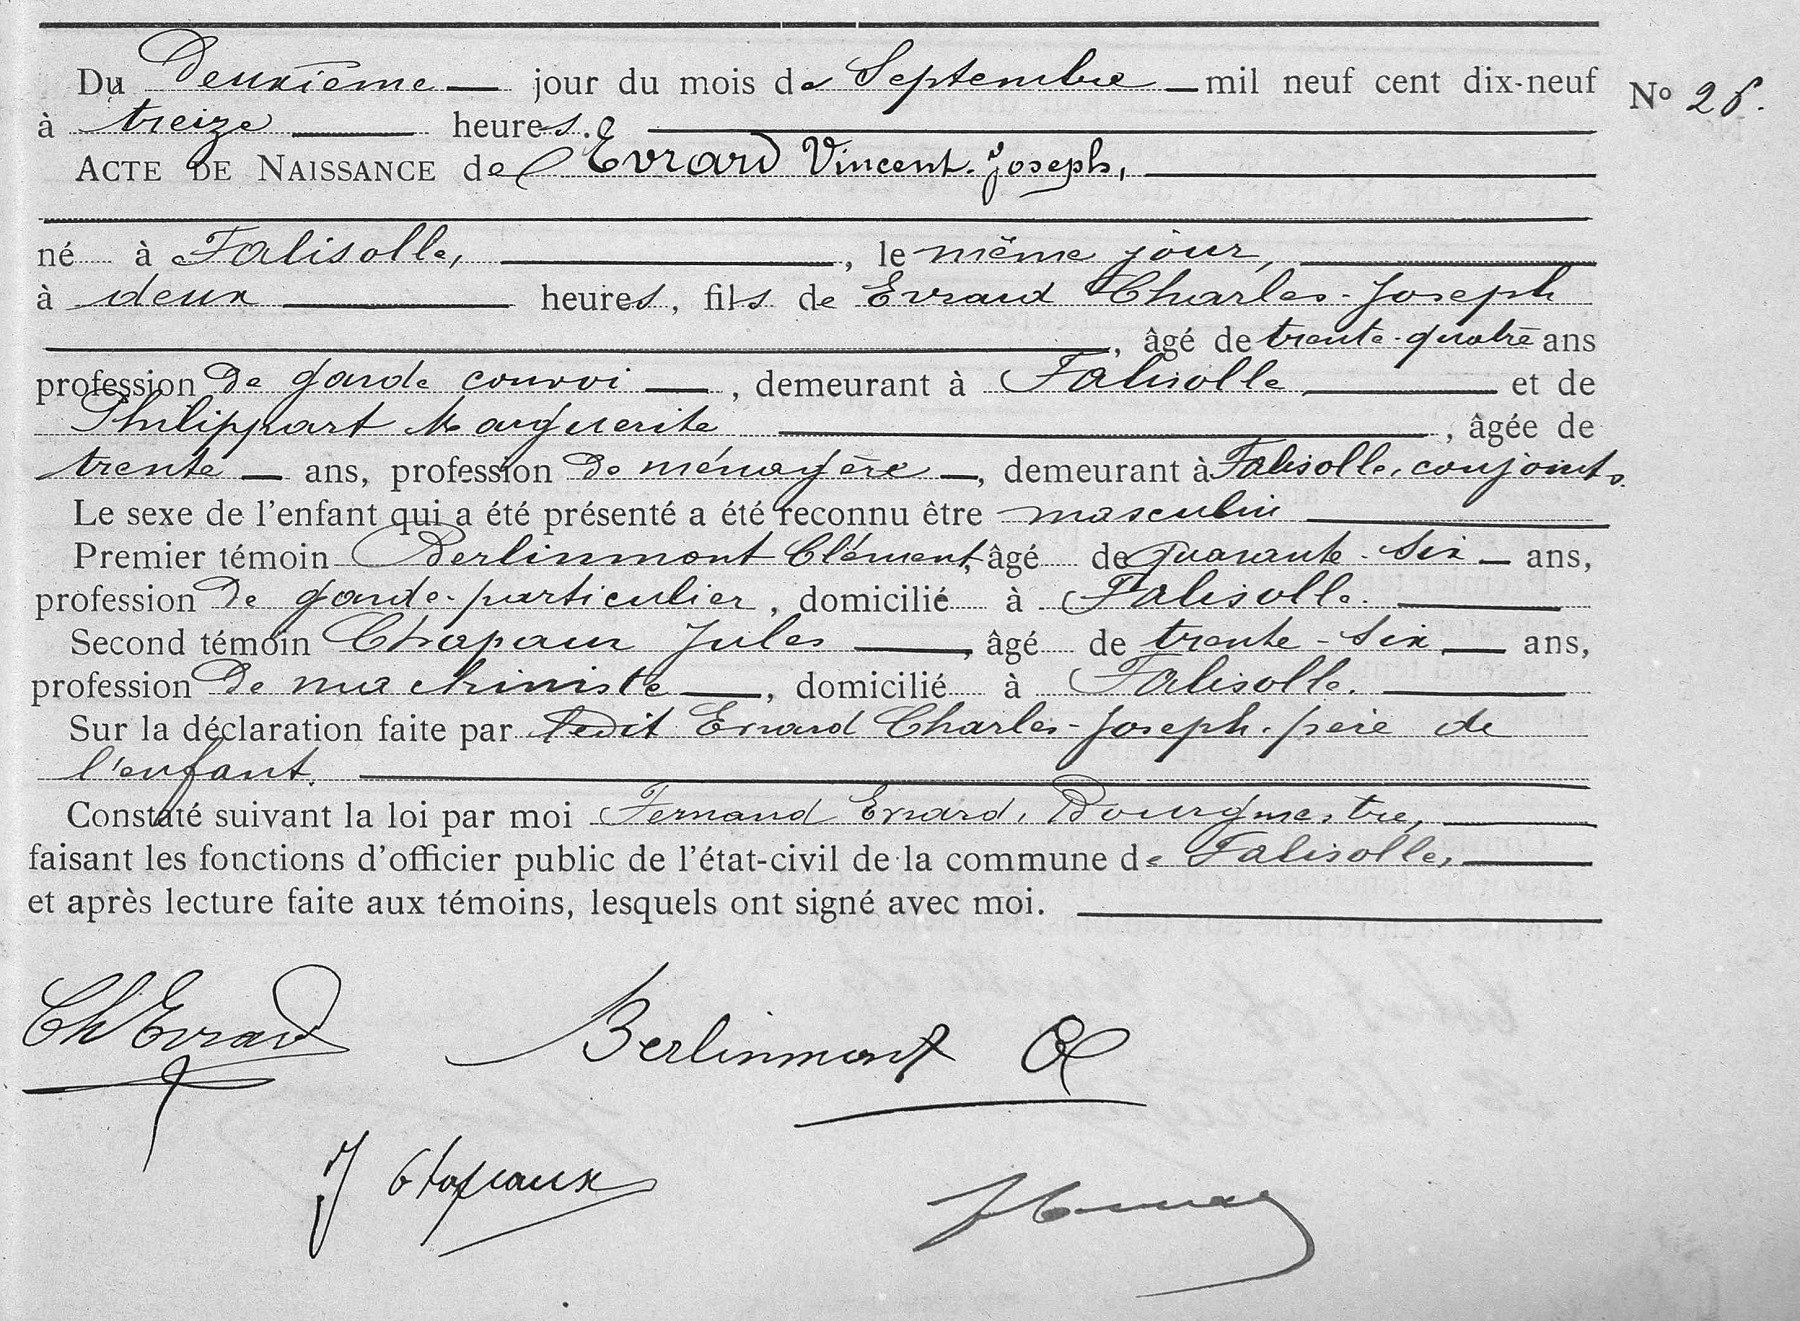 Du Deuxième jour du mois de Septembre mil neuf cent dix-neuf N° 26.
à treize heures.
ACTE DE NAISSANCE de Evrard Vincent-Joseph,
né à Falisolle, , le même jour,
à deux heures, fils de Evrard Charles-Joseph
, âgé de trente-quatre ans
profession de garde convoi , demeurant à Falisolle et de
Philippart Marguerite , âgée de
trente ans, profession de ménagère , demeurant à Falisolle, conjoints.
Le sexe de l'enfant qui a été présenté a été reconnu être masculin
Premier témoin Berlinmont Clément, âgé de quarante-six ans,
profession de garde-particulier, domicilié à Falisolle.
Second témoin Chapaux Jules , âgé de trente-six ans,
profession de machiniste , domicilié à Falisolle.
Sur la déclaration faite par ledit Evrard Charles-Joseph, père de
l'enfant.
Constaté suivant la loi par moi Fernand Evrard, Bourgmestre,
faisant les fonctions d'officier public de l'état-civil de la commune de Falisolle,
et après lecture faite aux témoins, lesquels ont signé avec moi.
Ch Evrard
Berlinmont Cl
J Chapeaux